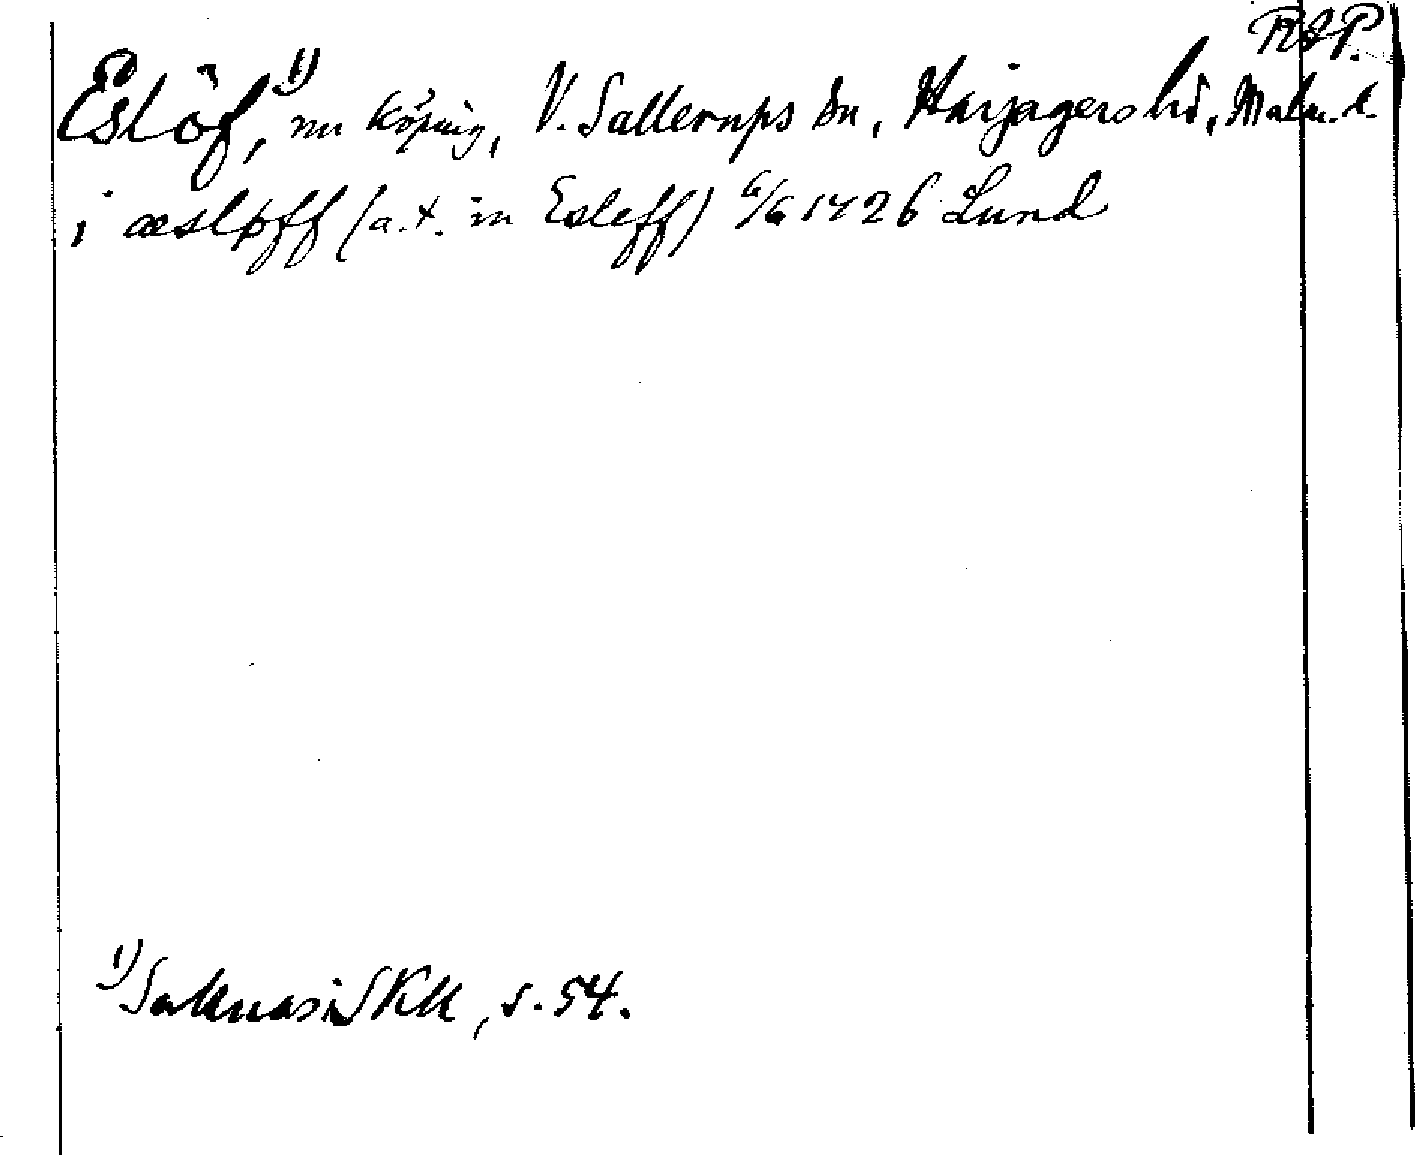 RAP.
Eslöf,¹⁾ nu köping, V. Sallerups sn, Harjagers hd, Malm. l.
i æsløff (a.t. in Esleff) 6/6 1426 Lund
¹⁾ Saknas i SKU, s. 54.